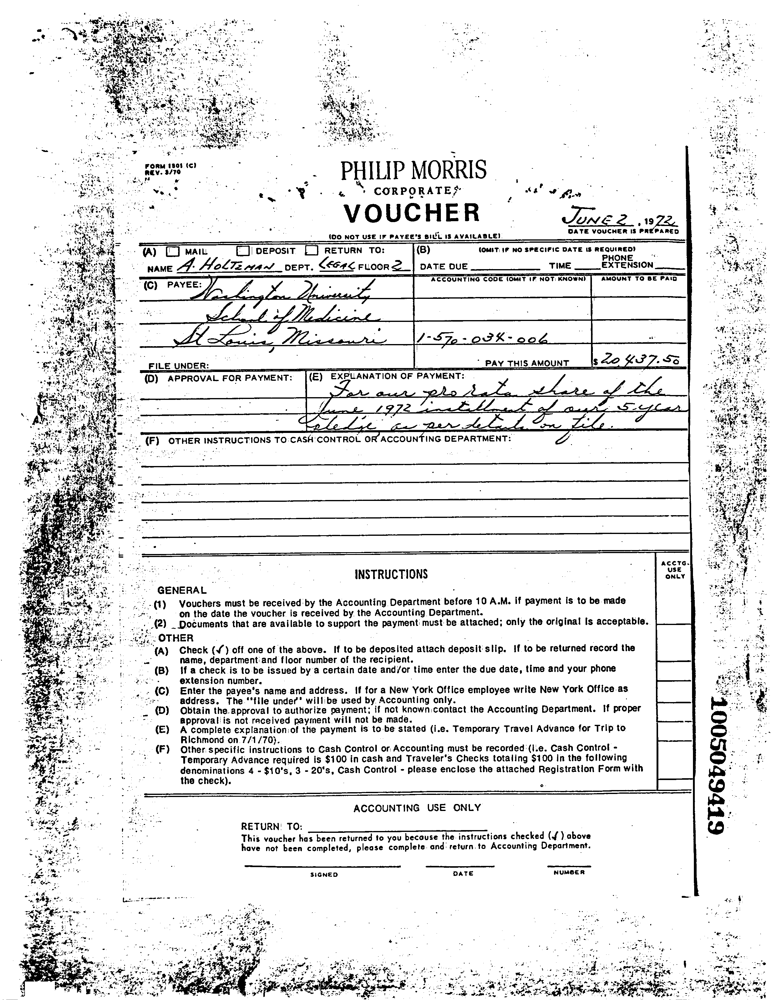 FORM 1501 (C)
REV. 3/70
PHILIP MORRIS
CORPORATE
VOUCHER
(DO NOT USE IF PAYEE'S BILL IS AVAILABLE)
JUNE 2, 1972
DATE VOUCHER IS PREPARED
(A) MAIL DEPOSIT RETURN TO:
NAME A. HOLTZMAN DEPT. LEGAL FLOOR 2
(B) (OMIT IF NO SPECIFIC DATE IS REQUIRED)
DATE DUE TIME PHONE EXTENSION
(C) PAYEE: Washington University
School of Medicine
St Louis, Missouri
FILE UNDER:
ACCOUNTING CODE (OMIT IF NOT KNOWN) AMOUNT TO BE PAID
1-570-034-006
PAY THIS AMOUNT $20,437.50
(D) APPROVAL FOR PAYMENT:
(E) EXPLANATION OF PAYMENT:
For our pro rata share of the
June 1972 installment of our 5-year
pledge as per details on file.
(F) OTHER INSTRUCTIONS TO CASH CONTROL OR ACCOUNTING DEPARTMENT:
INSTRUCTIONS
ACCTG.
USE
ONLY
GENERAL
(1) Vouchers must be received by the Accounting Department before 10 A.M. if payment is to be made
on the date the voucher is received by the Accounting Department.
(2) Documents that are available to support the payment must be attached; only the original is acceptable.
OTHER
(A) Check (✓) off one of the above. If to be deposited attach deposit slip. If to be returned record the
name, department and floor number of the recipient.
(B) If a check is to be issued by a certain date and/or time enter the due date, time and your phone
extension number.
(C) Enter the payee's name and address. If for a New York Office employee write New York Office as
address. The "file under" will be used by Accounting only.
(D) Obtain the approval to authorize payment; if not known contact the Accounting Department. If proper
approval is not received payment will not be made.
(E) A complete explanation of the payment is to be stated (i.e. Temporary Travel Advance for Trip to
Richmond on 7/1/70).
(F) Other specific instructions to Cash Control or Accounting must be recorded (i.e. Cash Control -
Temporary Advance required is $100 in cash and Traveler's Checks totaling $100 in the following
denominations 4 - $10's, 3 - 20's, Cash Control - please enclose the attached Registration Form with
the check).
ACCOUNTING USE ONLY
RETURN TO:
This voucher has been returned to you because the instructions checked (✓) above
have not been completed, please complete and return to Accounting Department.
SIGNED DATE NUMBER
1005049419